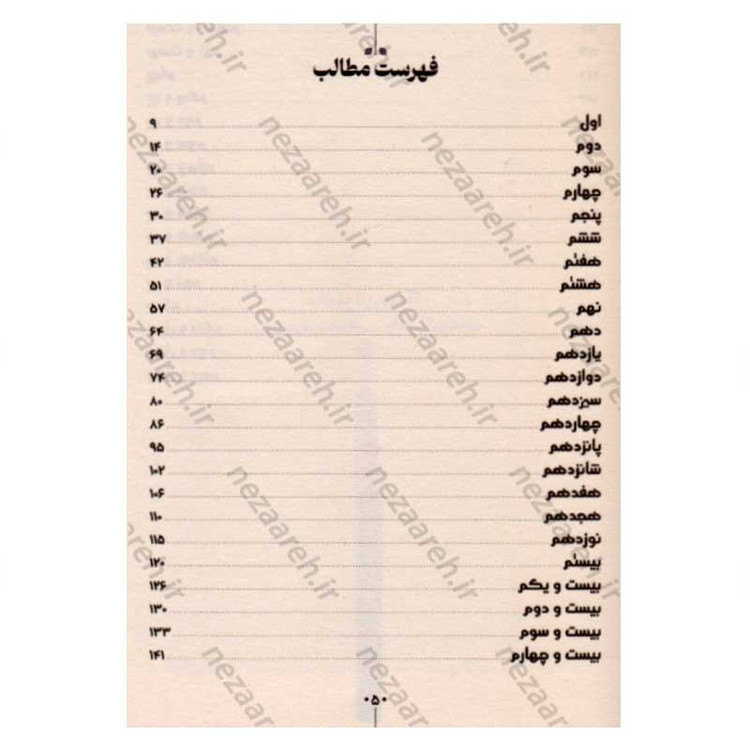 فهرست مطالب
اول ۹
دوم ۱۴
سوم ۲۰
چهارم ۲۶
پنجم ۳۰
ششم ۳۷
هفتم ۴۲
هشتم ۵۱
نهم ۵۷
دهم ۶۴
یازدهم ۶۹
دوازدهم ۷۴
سیزدهم ۸۰
چهاردهم ۸۶
پانزدهم ۹۵
شانزدهم ۱۰۲
هفدهم ۱۰۶
هجدهم ۱۱۰
نوزدهم ۱۱۵
بیستم ۱۲۰
بیست و یکم ۱۲۶
بیست و دوم ۱۳۰
بیست و سوم ۱۳۳
بیست و چهارم ۱۴۱
۰۵۰
nezaareh.ir